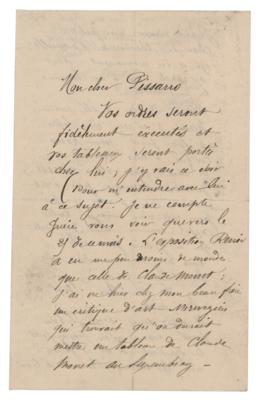 Mon cher Pissarro
Vos ordres seront
fidèlement exécutés et
vos tableaux seront portés
chez lui; j'y vais ce soir
pour m'entendre avec lui
à ce sujet. Je ne compte
guère vous voir que vers le
25 de ce mois. L'exposition Renoir
a eu un peu moins de monde
que celle de Claude Monet;
j'ai vu hier chez mon beau frère
un critique d'art Norvégien
qui trouvait qu'on devrait
mettre un tableau de Claude
Monet au Luxembourg –